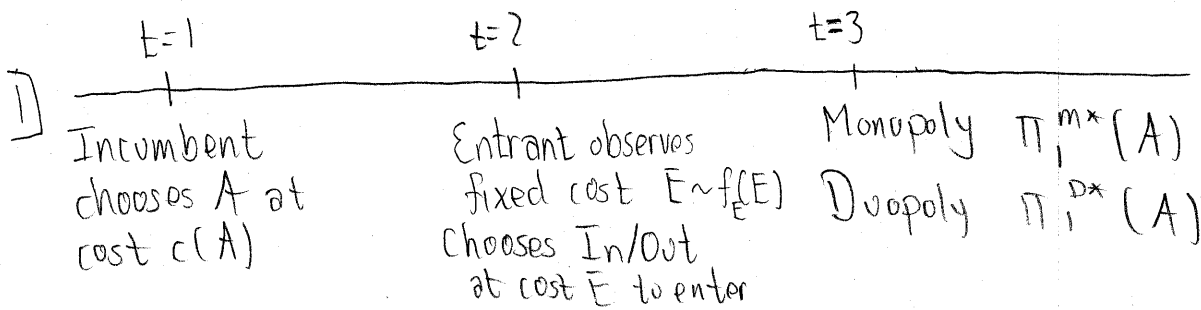 t=1 t=2 t=3
1]
Incumbent
chooses A at
cost c(A)
Entrant observes
fixed cost E~f_E(E)
Chooses In/Out
at cost E to enter
Monopoly π₁^{m*}(A)
Duopoly π₁^{D*}(A)